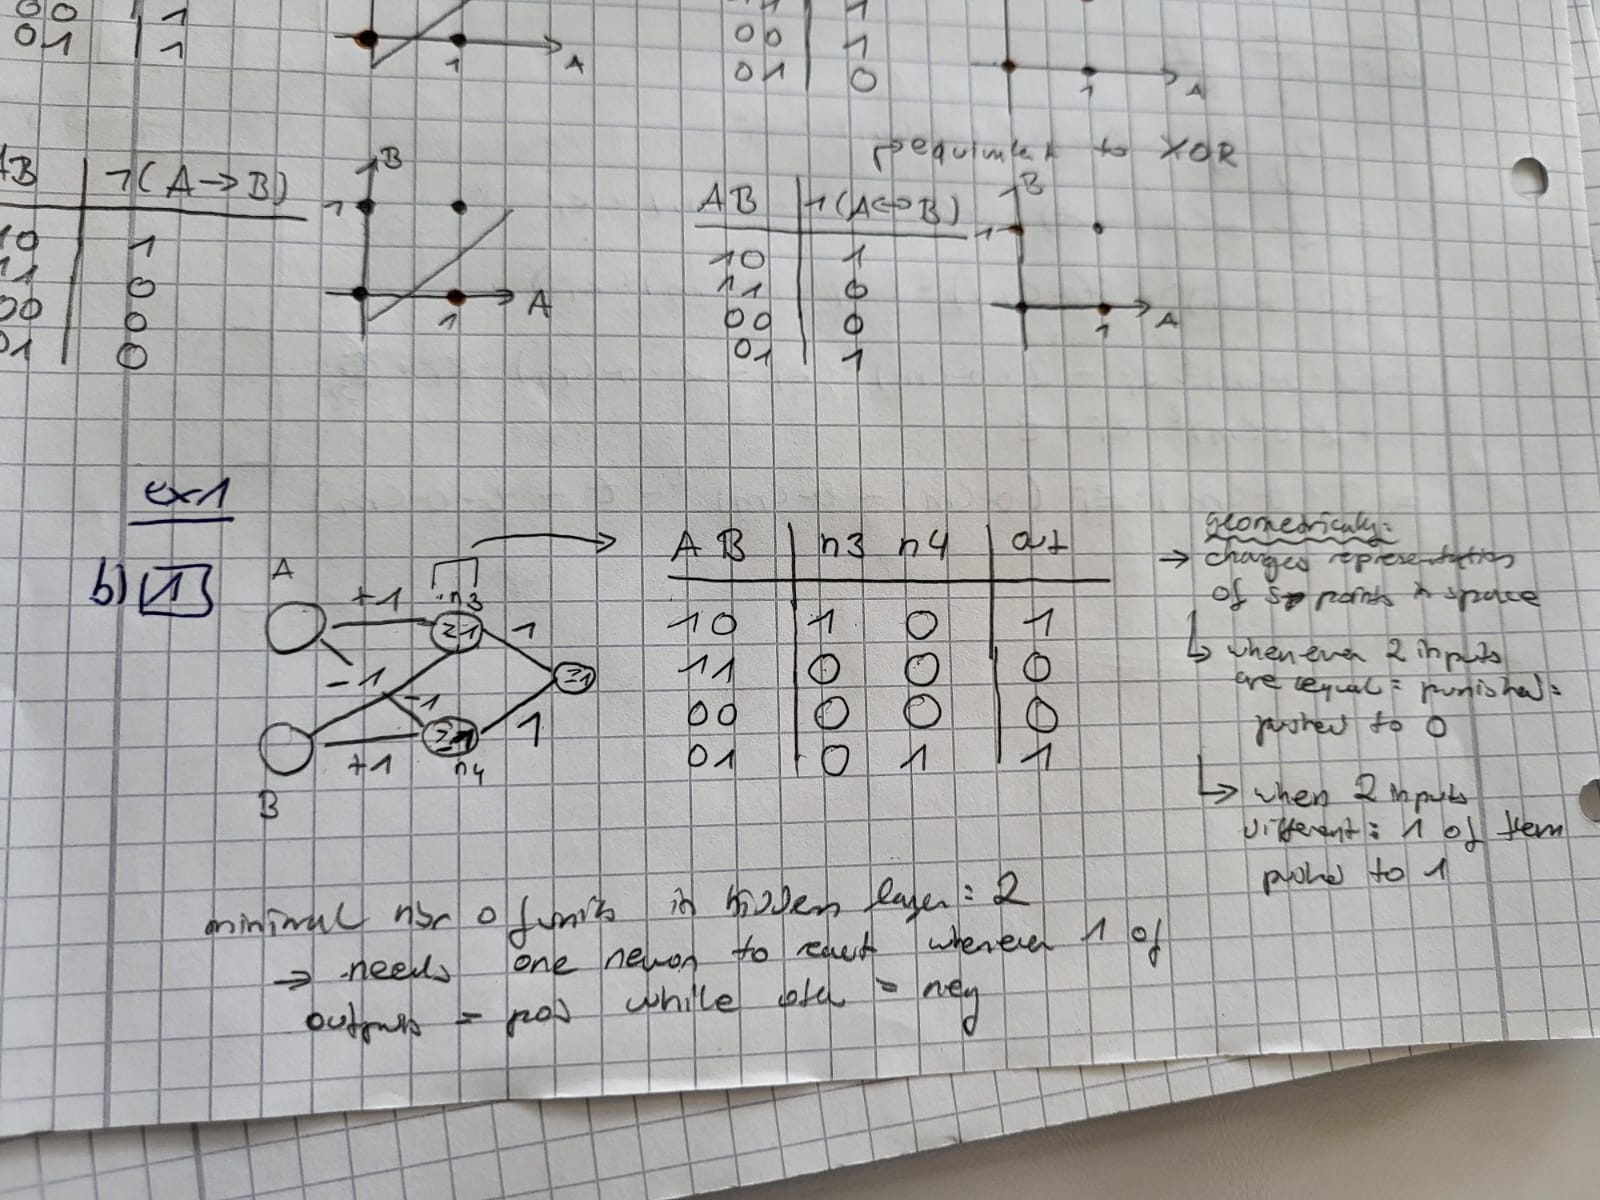 00 | 1
01 | 1
1
A
11 | 1
00 | 1
01 | 0
1
A
AB | ¬(A→B)
10 | 1
11 | 0
00 | 0
01 | 0
B
1
1
A
equivalent to XOR
AB | ¬(A↔B)
10 | 1
11 | 0
00 | 0
01 | 1
B
1
1
A
ex1
b) 1
A
+1
n3
≥1
1
-1
-1
≥1
1
≥1
+1
n4
B
A B | n3 n4 | out
10 | 1 0 | 1
11 | 0 0 | 0
00 | 0 0 | 0
01 | 0 1 | 1
geometrically:
→ changes representation
of points in space
↳ whenever 2 inputs
are equal = punished =
pushed to 0
↳ when 2 inputs
different: 1 of them
pushed to 1
minimal nbr of units in hidden layer: 2
→ needs one neuron to react whenever 1 of
outputs = pos while other = neg